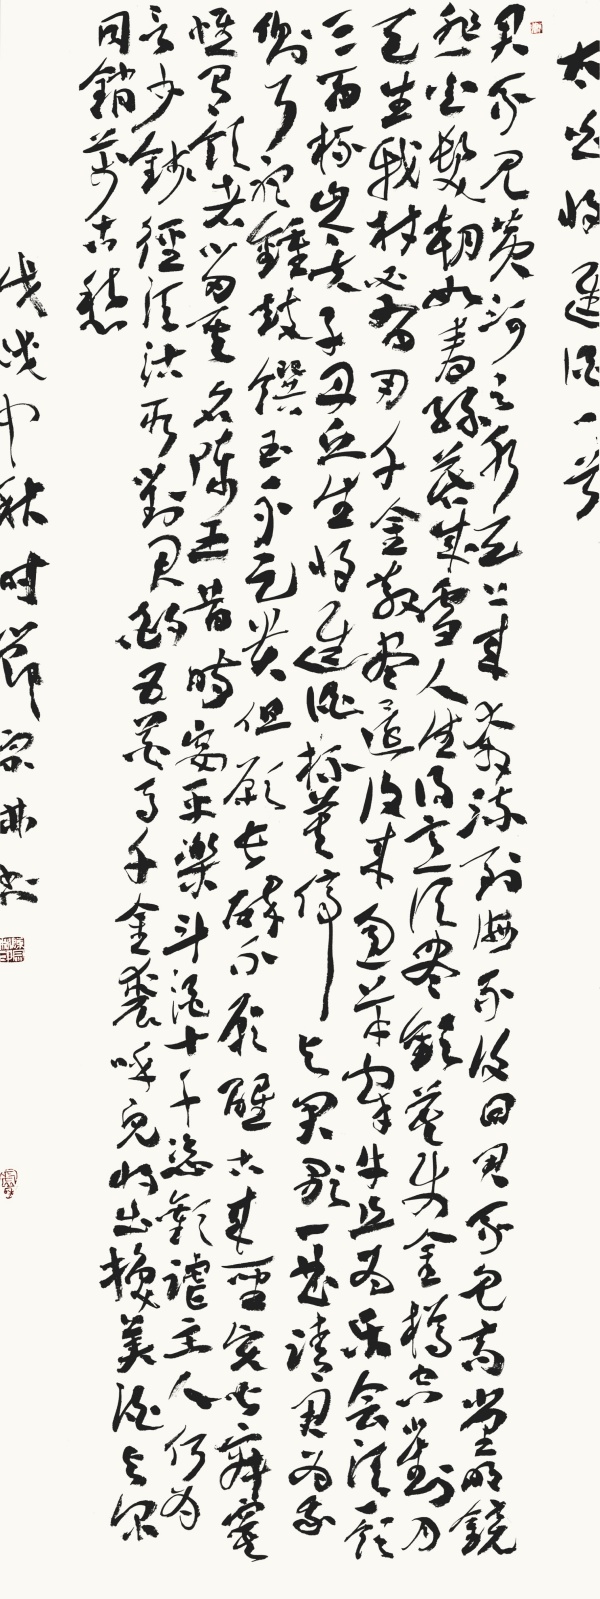 太白將進酒一首
君不見黃河之水天上來奔流到海不復回君不見高堂明鏡
悲白髮朝如青絲暮成雪人生得意須盡歡莫使金樽空對月
天生我材必有用千金散盡還復來烹羊宰牛且為樂會須一飲
三百杯岑夫子丹丘生將進酒杯莫停與君歌一曲請君為我
側耳聽鐘鼓饌玉不足貴但願長醉不願醒古來聖賢皆寂寞
惟有飲者留其名陳王昔時宴平樂斗酒十千恣歡謔主人何為
言少錢徑須沽取對君酌五花馬千金裘呼兒將出換美酒與爾
同銷萬古愁
戊戌中秋时節